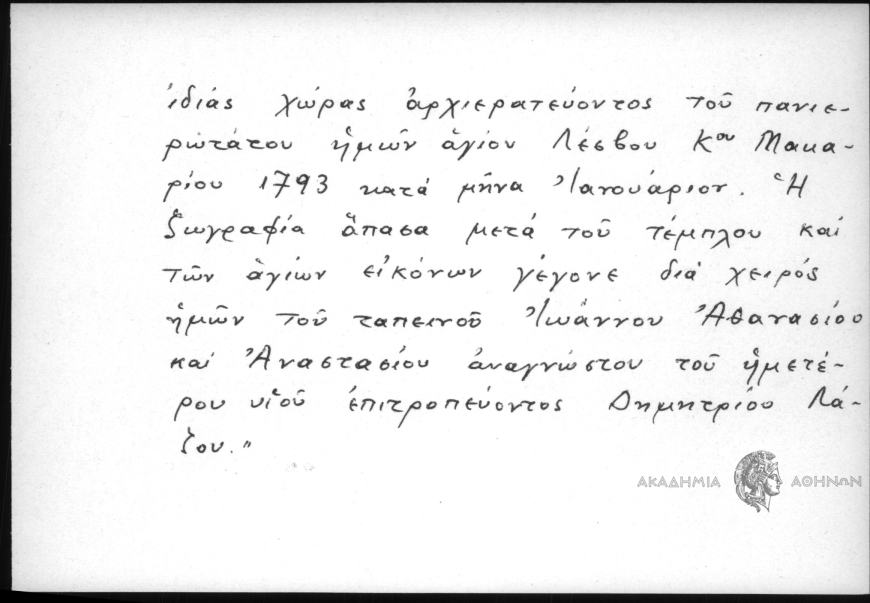 ἰδιάς χώρας ἀρχιερατεύοντος τοῦ πανιε-
ρωτάτου ἡμῶν ἁγίου Λέσβου Κου Μακα-
ρίου 1793 κατά μῆνα Ἰανουάριον. Ἡ
ζωγραφία ἅπασα μετά τοῦ τέμπλου καί
τῶν ἁγίων εἰκόνων γέγονε διά χειρός
ἡμῶν τοῦ ταπεινοῦ Ἰωάννου Ἀθανασίου
καί Ἀναστασίου ἀναγνώστου τοῦ ἡμετέ-
ρου υἱοῦ ἐπιτροπεύοντος Δημητρίου Λά-
ζου."
ΑΚΑΔΗΜΙΑ ΑΘΗΝΩΝ